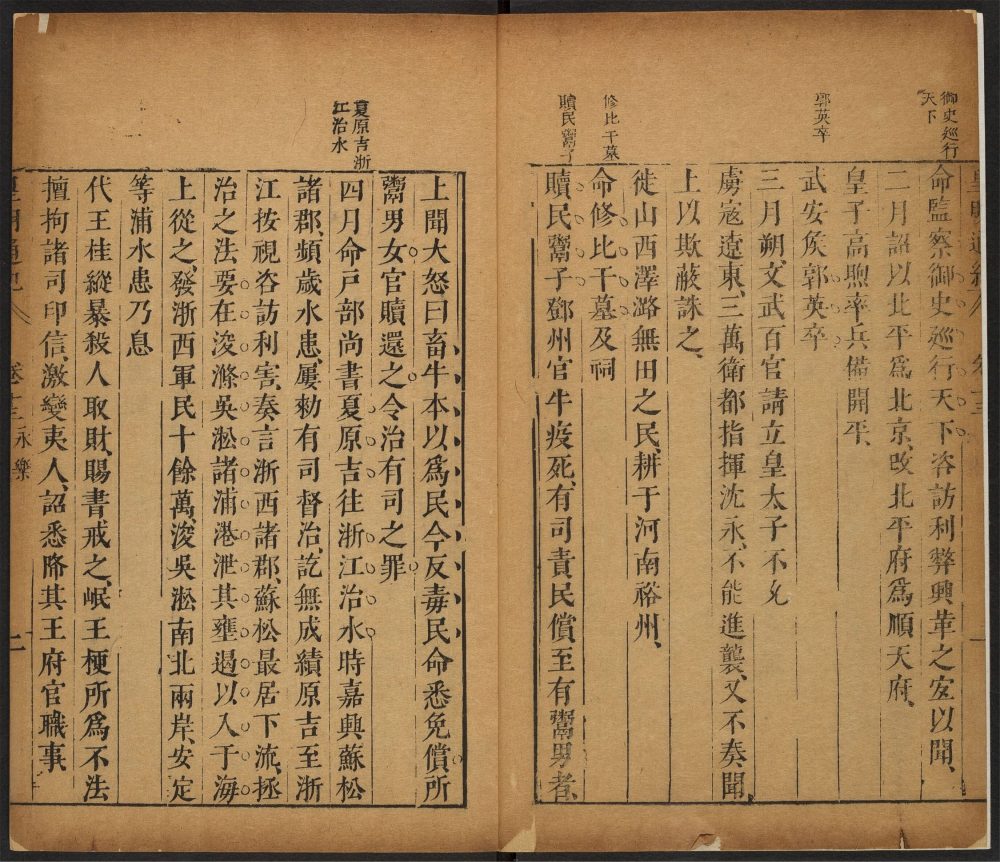 御史巡行
天下
郭英卒
修比干墓
贖民鬻子
命監察御史巡行天下咨訪利弊興革之宜以聞
二月詔以北平爲北京改北平府爲順天府
皇子高煦率兵備開平
武安侯郭英卒
三月朔文武百官請立皇太子不允
虜寇遼東三萬衛都指揮沈永不能進襲又不奏聞
上以欺蔽誅之
徙山西澤潞無田之民耕于河南裕州
命修比干墓及祠
贖民鬻子鄧州官牛疫死有司責民償至有鬻男者
夏原吉浙
江治水
上聞大怒曰畜牛本以爲民今反毒民命悉免償所
鬻男女官贖還之令治有司之罪
四月命戸部尚書夏原吉往浙江治水時嘉興蘇松
諸郡頻歲水患屢勑有司督治訖無成績原吉至浙
江按視咨訪利害奏言浙西諸郡蘇松最居下流拯
治之法要在浚滌吳淞諸浦港泄其壅遏以入于海
上從之發浙西軍民十餘萬浚吳淞南北兩岸安定
等浦水患乃息
代王桂縱暴殺人取財賜書戒之岷王梗所爲不法
擅拘諸司印信激變夷人詔悉降其王府官職事
皇明通紀 卷十三 永樂 二